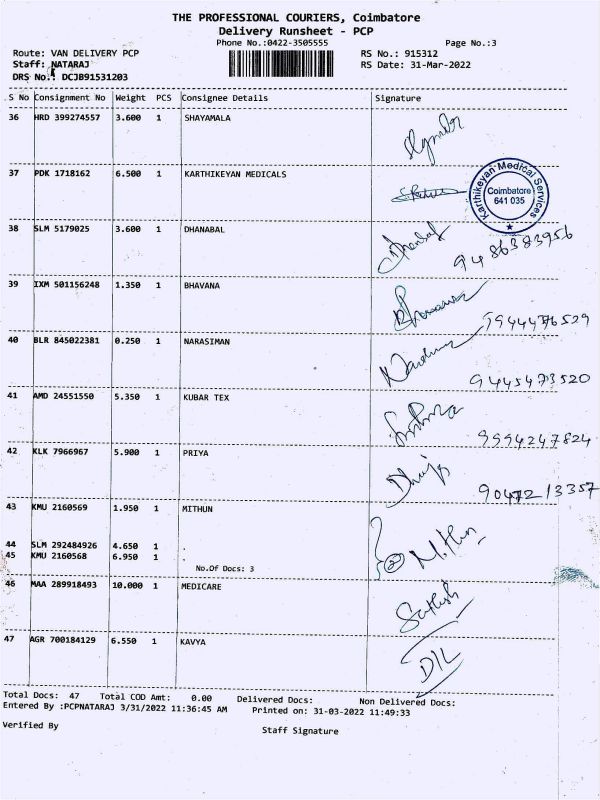 THE PROFESSIONAL COURIERS, Coimbatore
Delivery Runsheet - PCP
Phone No.:0422-3505555 Page No.:3
Route: VAN DELIVERY PCP RS No.: 915312
Staff: NATARAJ RS Date: 31-Mar-2022
DRS No.: DCJB91531203
S No Consignment No Weight PCS Consignee Details Signature
36 HRD 399274557 3.600 1 SHAYAMALA
37 PDK 1718162 6.500 1 KARTHIKEYAN MEDICALS
Karthikeyan Medical Services
Coimbatore
641 035
38 SLM 5179025 3.600 1 DHANABAL Dhanabal
9486383956
39 IXM 501156248 1.350 1 BHAVANA
9944476529
40 BLR 845022381 0.250 1 NARASIMAN
9445473520
41 AMD 24551550 5.350 1 KUBAR TEX
9994247824
42 KLK 7966967 5.900 1 PRIYA
9047213357
43 KMU 2160569 1.950 1 MITHUN
44 SLM 292484926 4.650 1 .
45 KMU 2160568 6.950 1 .
No.Of Docs: 3
M.thun
46 MAA 289918493 10.000 1 MEDICARE Sathish
47 AGR 700184129 6.550 1 KAVYA D/L
Total Docs: 47 Total COD Amt: 0.00 Delivered Docs: Non Delivered Docs:
Entered By :PCPNATARAJ 3/31/2022 11:36:45 AM Printed on: 31-03-2022 11:49:33
Verified By Staff Signature